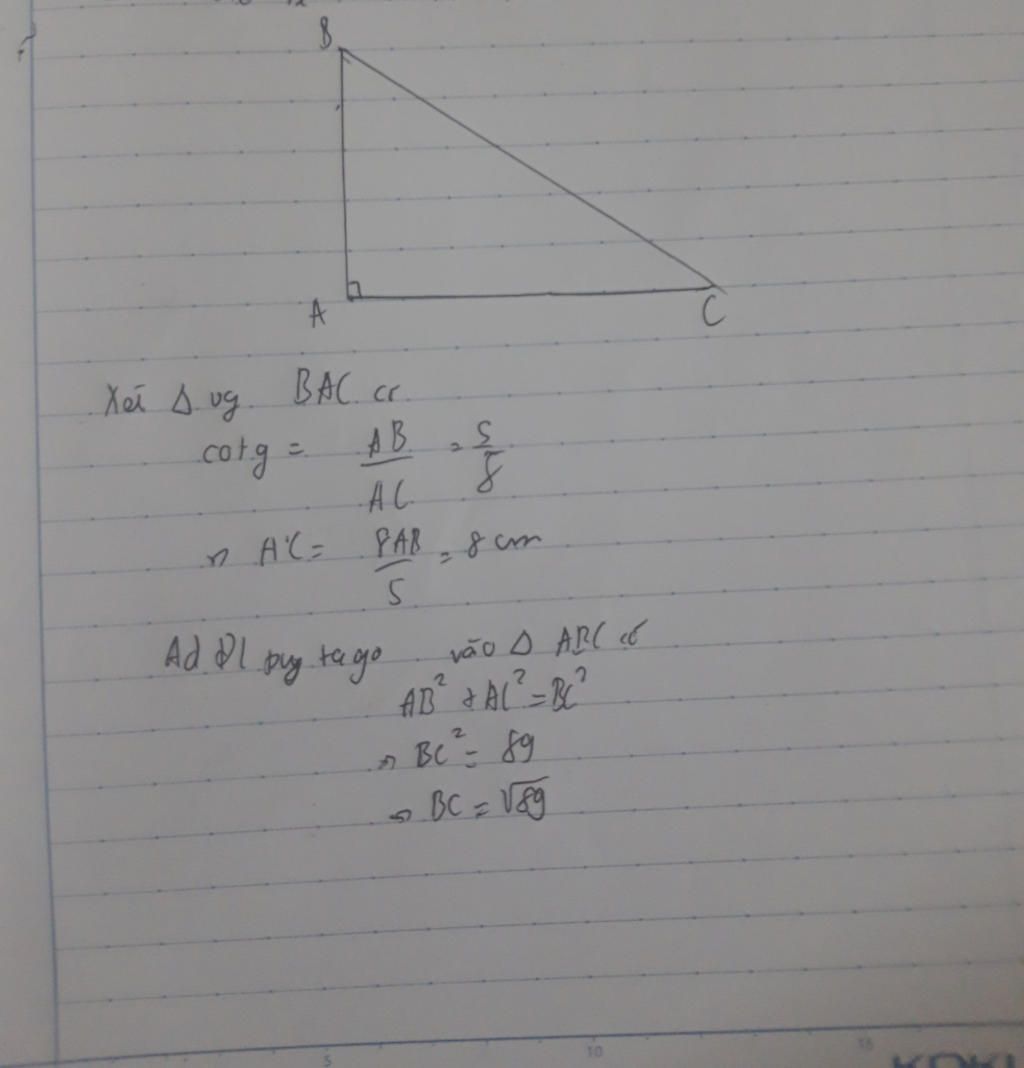 B
A
C
Xét Δ vg BAC có
cotg = AB/AC = 5/8
=> AC = 8AB/5 = 8 cm
Ad ĐL pytago vào Δ ABC có
AB² + AC² = BC²
=> BC² = 89
=> BC = √89
5 10 15